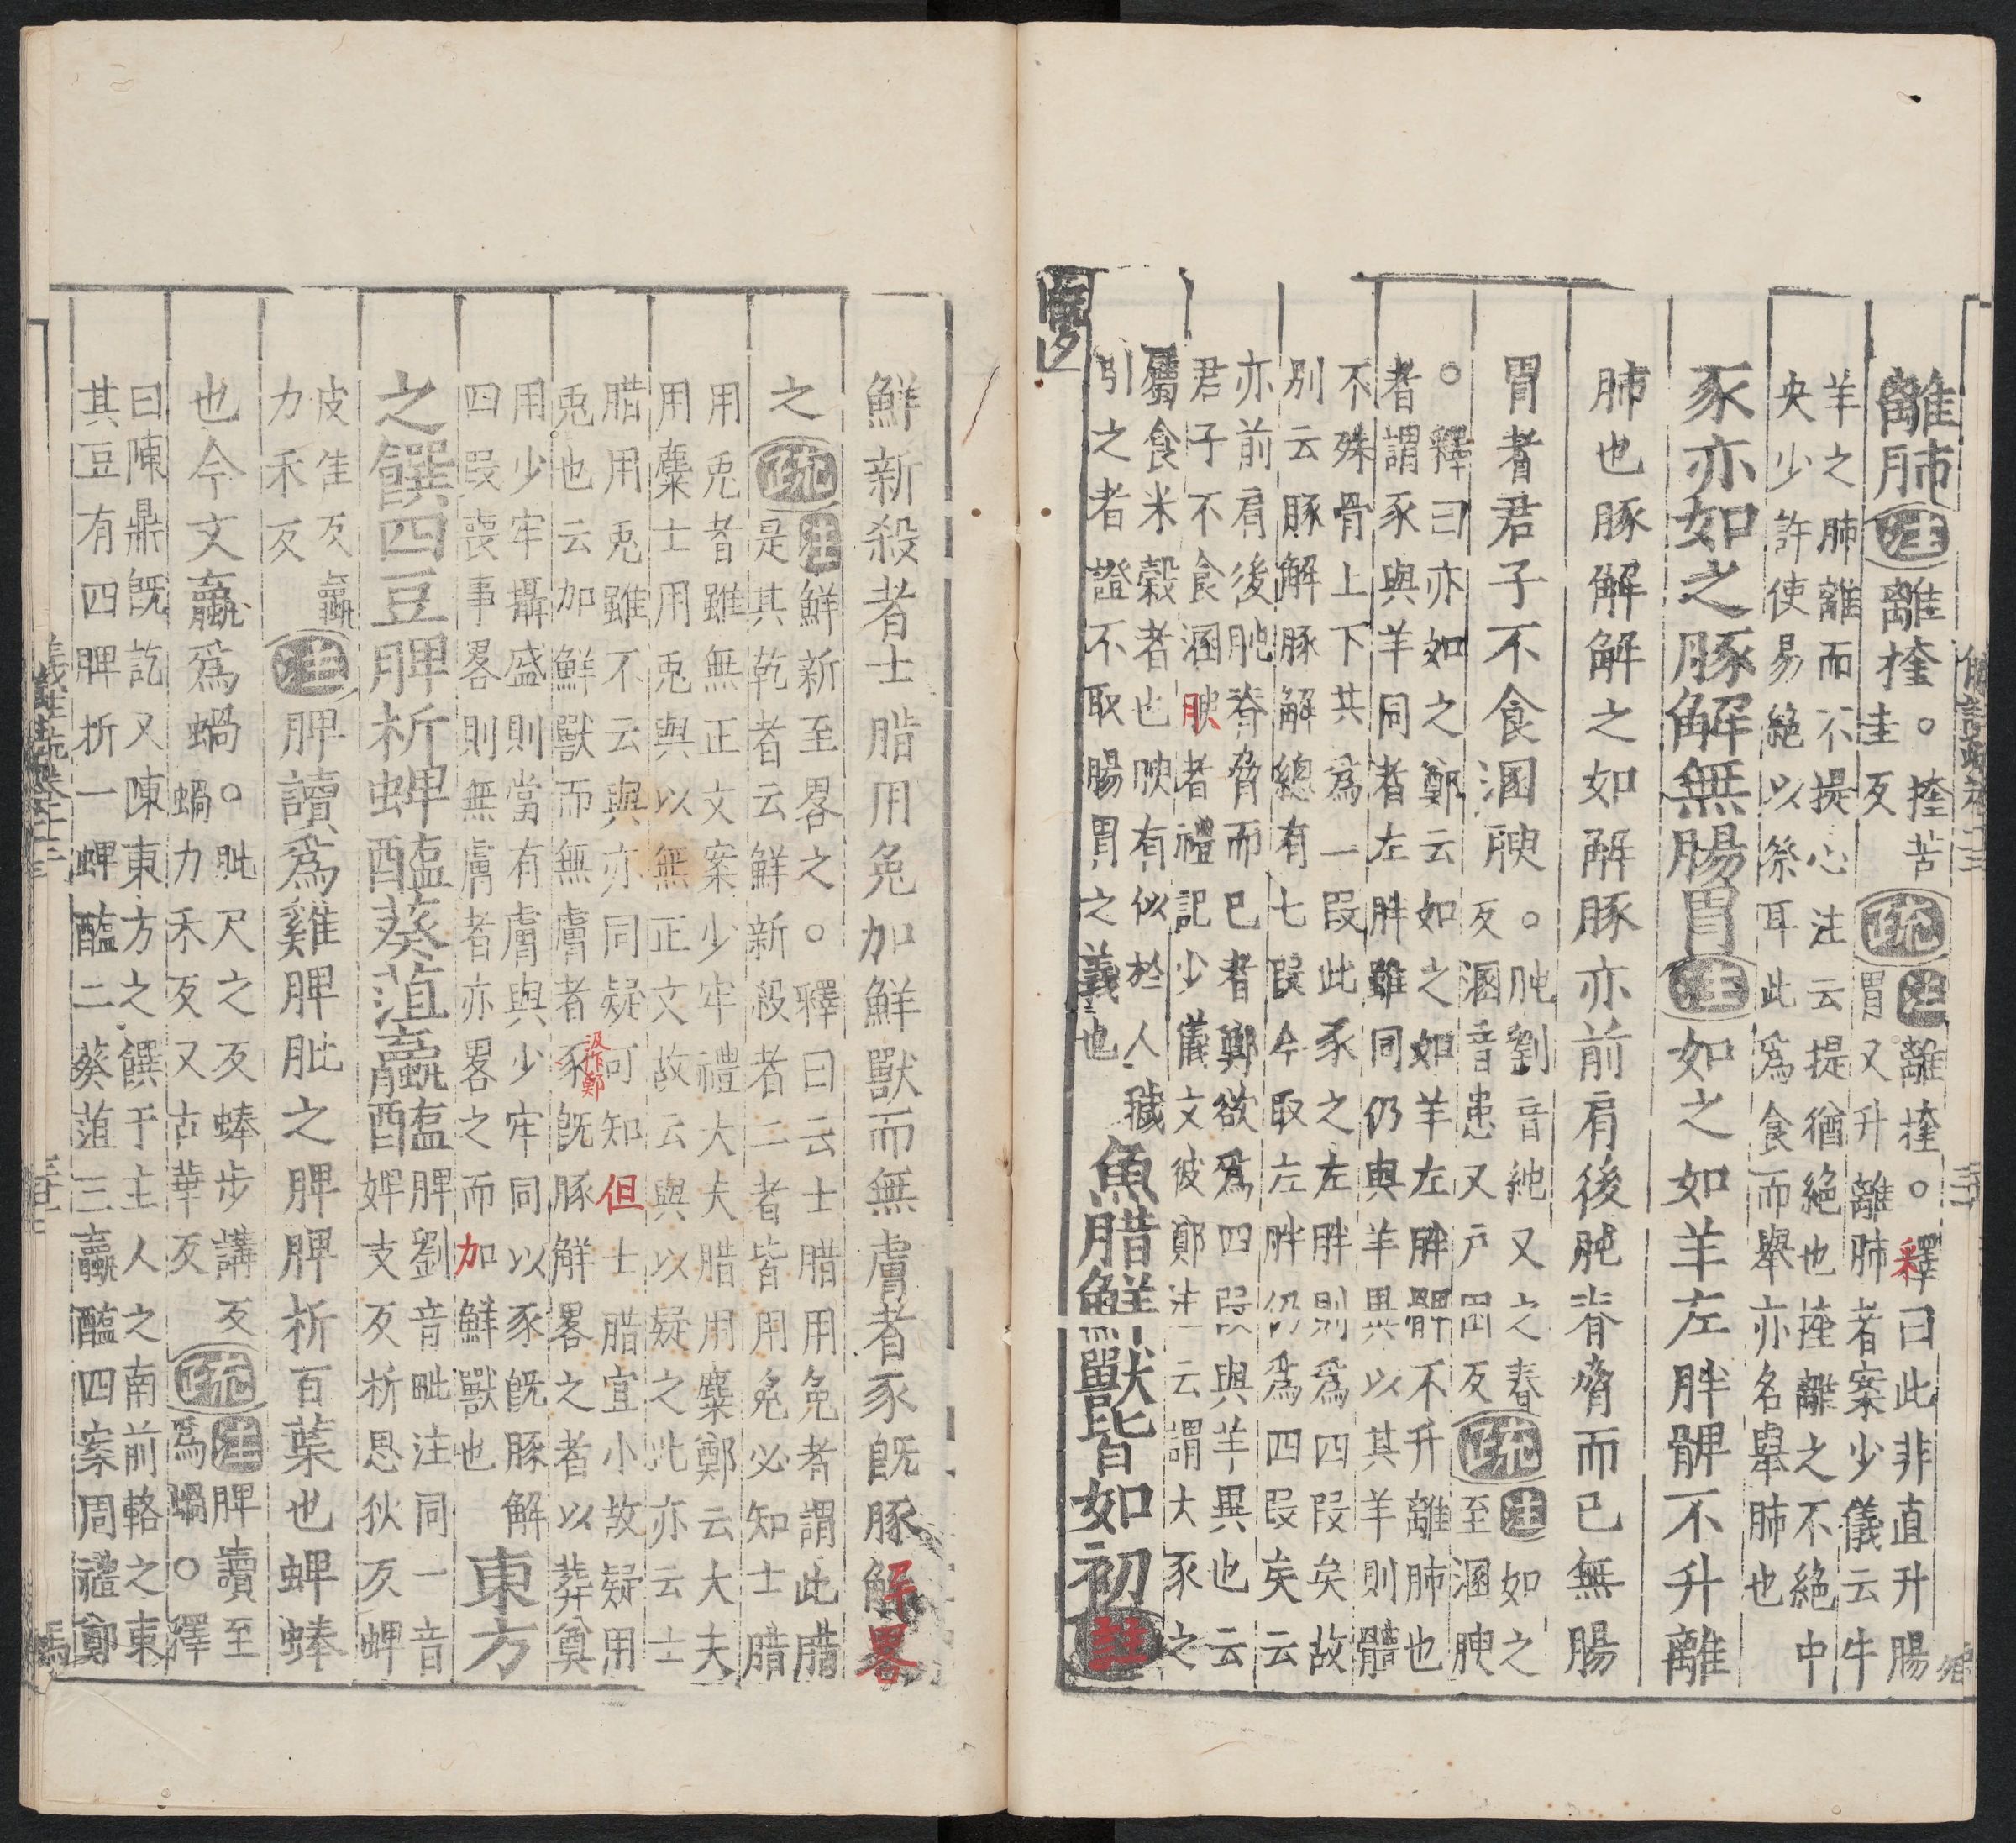 離肺注離㨒。㨒苦
圭反疏注離㨒。釋曰此非直升腸
胃又升離肺者案少儀云牛
羊之肺離而不提心注云提猶絶也㨒離之不絶中
央少許使易絶以祭耳此為食而舉亦名舉肺也
豕亦如之豚解無腸胃注如之如羊左胖髀不升離
肺也豚解解之如解豚亦前肩後肫脊脅而已無腸
胃者君子不食溷腴。肫劉音純又之春
反溷音患又戶囷反疏注如之
至溷腴
。釋曰亦如之鄭云如之如羊左胖髀不升離肺也
者謂豕與羊同者左胖雖同仍與羊異以其羊則體
不殊骨上下共為一叚此豕之左胖則為四叚矣故
别云豚解豚解總有七叚今取左胖仍為四叚矣云
亦前肩後肫脊脅而已者鄭欲為四叚與羊異也云
君子不食溷腴者禮記少儀文彼鄭注云謂犬豕之
屬食米穀者也腴有似於人穢
引之者證不取腸胃之義也魚腊鮮獸皆如初註
鮮新殺者士腊用兔加鮮獸而無膚者豕既豚解畧
之疏注鮮新至畧之。釋曰云士腊用兔者謂此腊
是其乾者云鮮新殺者二者皆用兔必知士腊
用兔者雖無正文案少牢禮大夫腊用麋鄭云大夫
用麋士用兔與以無正文故云與以疑之此亦云士
腊用兔雖不云與亦同疑可知但士腊宜小故疑用
兔也云加鮮獸而無膚者豕既豚解畧之者以葬奠
汲作鄭
用少牢攝盛則當有膚與少牢同以豕既豚解
四叚喪事畧則無膚者亦畧之而加鮮獸也東方
之饌四豆脾析蜱醢葵菹蠃醢脾劉音毗注同一音
婢支反析思狄反蜱
皮隹反蠃
力禾反注脾讀為雞脾肶之脾脾析百葉也蜱蜯
也今文蠃為蝸。肶尺之反蜯步講反
蝸力禾反又古華反疏注脾讀至
為蝸。釋
曰陳鼎既訖又陳東方之饌于主人之南前輅之東
其豆有四脾析一蜱醢二葵菹三蠃醢四案周禮鄭